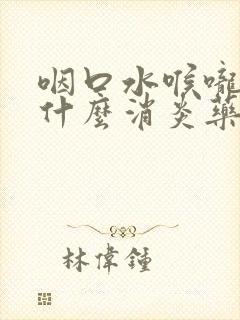 咽口水喉嚨
什麼消炎藥
林偉鍾